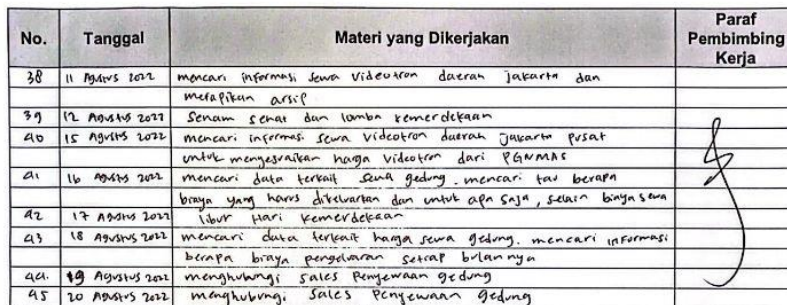 No. Tanggal Materi yang Dikerjakan Paraf Pembimbing Kerja
38 11 Agustus 2022 mencari informasi sewa videotron daerah jakarta dan
merapikan arsip
39 12 Agustus 2022 Senam sehat dan lomba kemerdekaan
40 15 Agustus 2022 mencari informasi sewa videotron daerah Jakarta pusat
untuk menyesuaikan harga videotron dari PGNMAS
41 16 Agustus 2022 mencari data terkait sewa gedung. mencari tau berapa
biaya yang harus dikeluarkan dan untuk apa saja, selain biaya sewa
42 17 Agustus 2022 libur Hari kemerdekaan
43 18 Agustus 2022 mencari data terkait harga sewa gedung. mencari informasi
berapa biaya pengeluaran setiap bulannya
44. 19 Agustus 2022 menghubungi sales penyewaan gedung
45 20 Agustus 2022 menghubungi sales penyewaan gedung